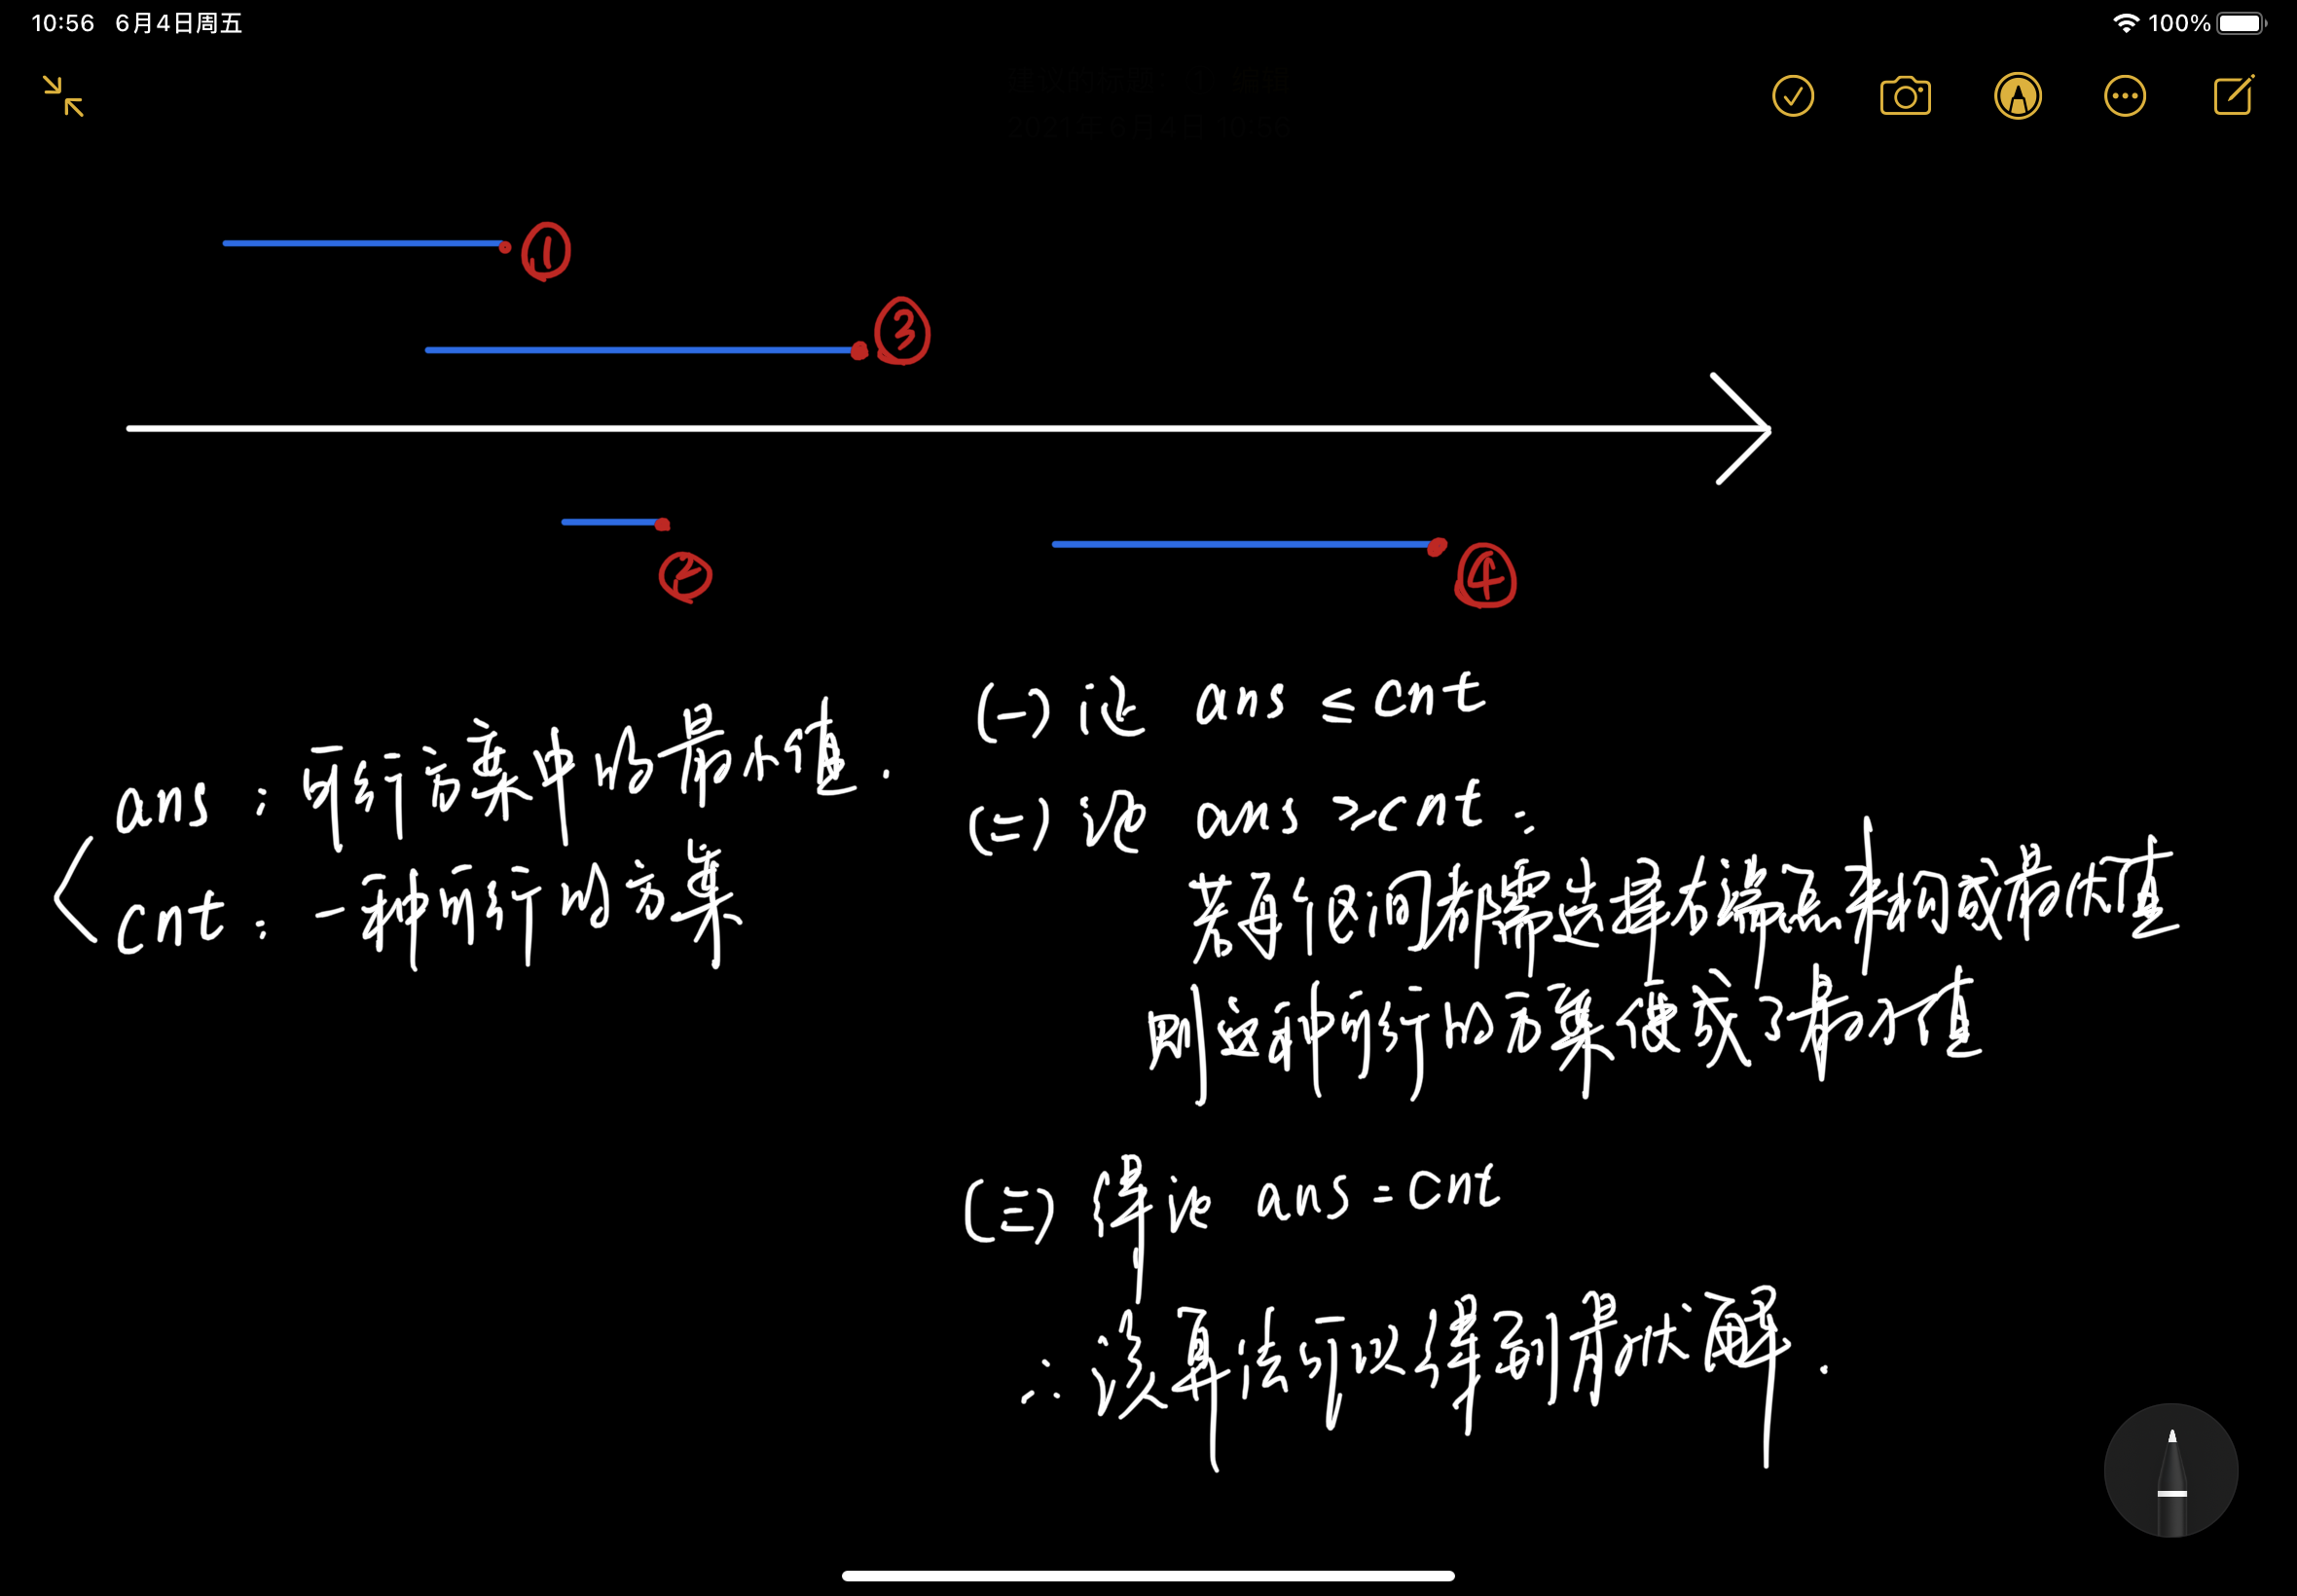 10:56 6月4日周五
100%
①
③
②
④
ans：可行方案中的最小值.
cnt：一种可行的方案
(一) 证 ans ≤ cnt
(二) 证 ans ≥ cnt：
若每个区间都需选择右端点来构成最优值
则这种可行的方案便成了最小值
(三) 得证 ans = cnt
∴ 该算法可以得到最优解.